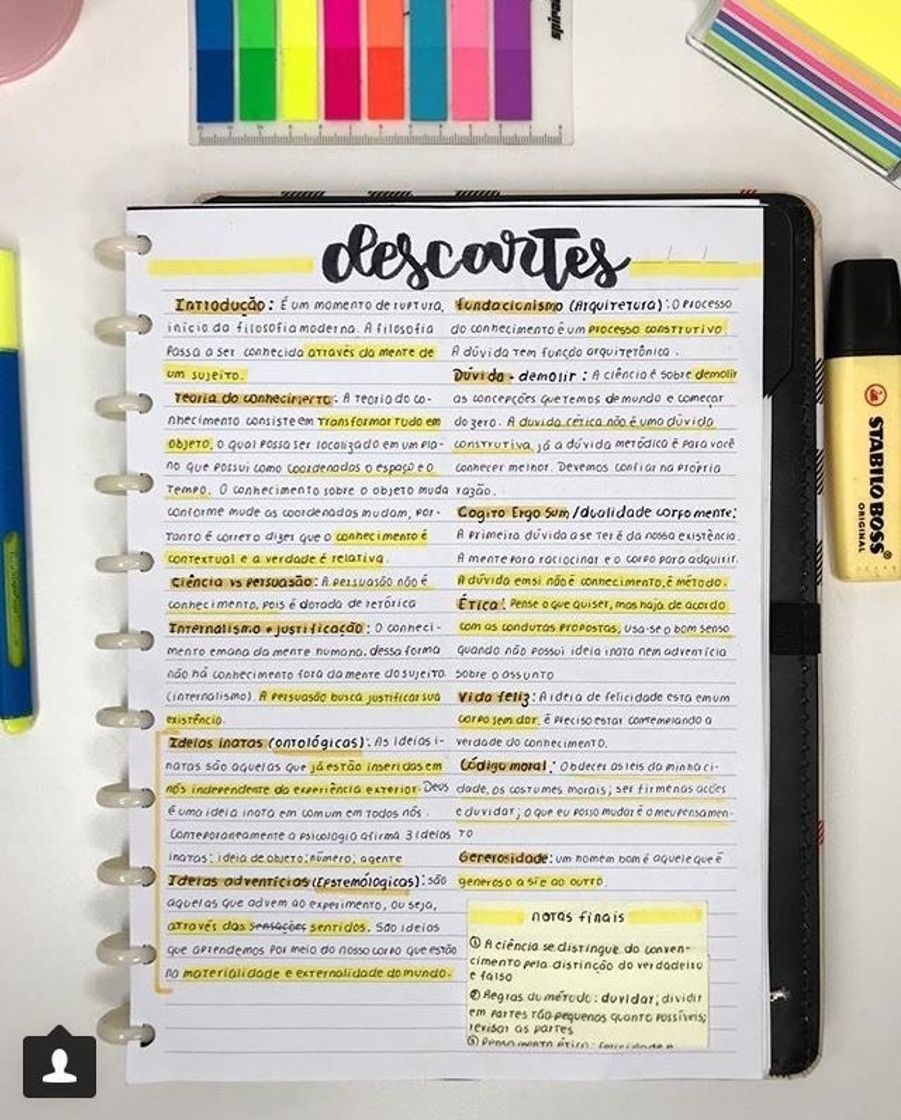 spiral
descartes
Introdução: É um momento de ruptura,
início da filosofia moderna. A filosofia
passa a ser conhecida através da mente de
um sujeito.
Teoria do conhecimento: A teoria do co-
nhecimento consiste em transformar tudo em
objeto, o qual possa ser localizado em um pla-
no que possui como coordenadas o espaço e o
tempo. O conhecimento sobre o objeto muda
conforme mude as coordenadas mudam, por-
tanto é correto dizer que o conhecimento é
contextual e a verdade é relativa.
Ciência vs persuasão: A persuasão não é
conhecimento, pois é dotada de retórica
Internalismo e justificação: O conheci-
mento emana da mente humana, dessa forma
não há conhecimento fora da mente do sujeito
(internalismo). A persuasão busca justificar sua
existência.
Ideias inatas (ontológicas): As ideias i-
natas são aquelas que já estão inseridas em
nós independente da experiência exterior. Deus
é uma ideia inata em comum em todos nós.
Conteporaneamente a psicologia afirma 3 ideias
inatas: ideia de objeto; número; agente
Ideias adventícias (Epstemólogicas): são
aquelas que advem ao experimento, ou seja,
através das sensações sentidos. São ideias
que aprendemos por meio do nosso corpo que estão
na materialidade e externalidade do mundo.
fundacionismo (Arquitetura): O processo
do conhecimento é um processo construtivo.
A dúvida tem função arquitetônica.
Dúvida - demolir: A ciência é sobre demolir
as concepções que temos de mundo e começar
do zero. A duvida cética não é uma dúvida
construtiva, já a dúvida metódica é para você
conhecer melhor. Devemos confiar na própria
razão.
Cogito Ergo Sum / dualidade corpo mente:
A primeira dúvida a se ter é da nossa existência.
A mente para raciocinar e o corpo para adquirir.
A dúvida em si não é conhecimento, é método.
Ética: Pense o que quiser, mas haja de acordo
com as condutas propostas, usa-se o bom senso
quando não possui ideia inata nem adventícia
sobre o assunto
Vida feliz: A ideia de felicidade esta em um
corpo sem dor, é preciso estar contemplando a
verdade do conhecimento.
Código moral: Obdecer as leis da minha ci-
dade, os costumes morais; ser firme nas acões
e duvidar; o que eu posso mudar é o meu pensamen-
to
Generosidade: um homem bom é aquele que é
generoso a si e ao outro.
notas finais
① A ciência se distingue do conven-
cimento pela distinção do verdadeiro
e falso
② Regras do método: duvidar; dividir
em partes tão pequenas quanto possíveis;
revisar as partes
③ Pensamento ético: felicidade é
STABILO BOSS
ORIGINAL